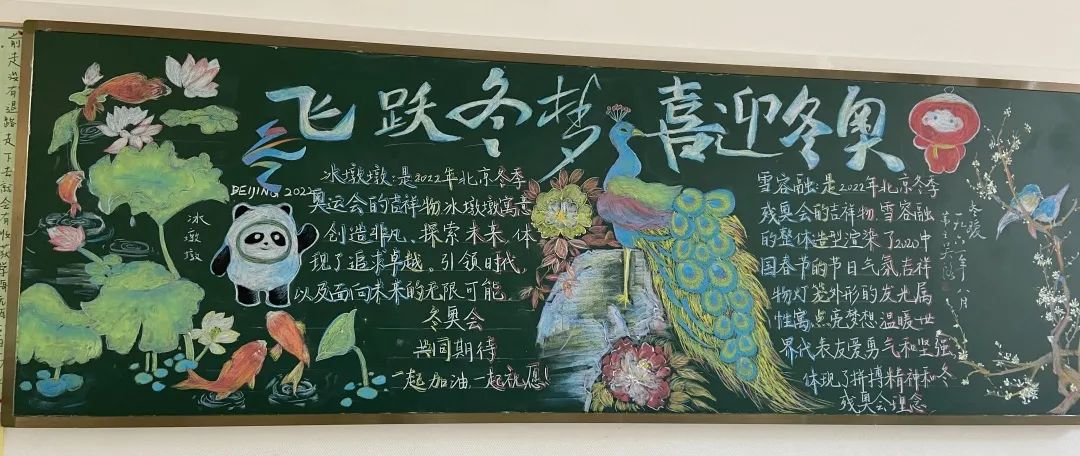 前走没有退路走下去就会有收获
飞跃冬梦 喜迎冬奥
BEIJING 2022
冰墩墩
冰墩墩:是2022年北京冬季
奥运会的吉祥物.冰墩墩寓意
创造非凡、探索未来,体
现了追求卓越、引领时代,
以及面向未来的无限可能
冬奥会
共同期待
一起加油一起祝愿!
雪容融:是2022年北京冬季
残奥会的吉祥物,雪容融
的整体造型渲染了2020中
国春节的节日气氛吉祥
物灯笼外形的发光属
性寓点亮梦想温暖世
界代表友爱勇气和坚强,
体现了拼搏精神和冬
残奥会理念
八月